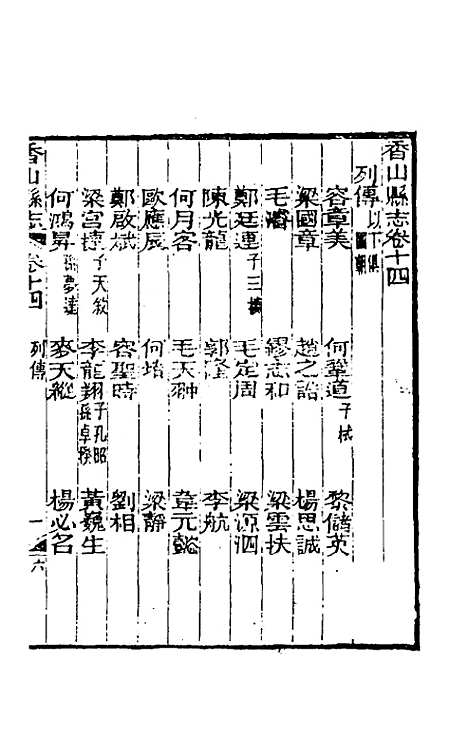 香山縣志卷十四
列傳以下俱國朝
容章美 何鞏道子栻 黎儲英
梁國章 趙之誥 楊思誠
毛濬 繆志和 梁雲扶
鄭廷運子三 毛定周 梁源泗
陳光龍 郭 李航
何月客 毛天翀 韋元懿
歐應辰 何培 梁靜
鄭啟斌 容聖時 劉相
梁宮捷子天敘 李龍翔子孔昭孫卓揆 黃巍生
何鴻昇孫夢達 麥天縱 楊必名
香山縣志 卷十四 列傳 一